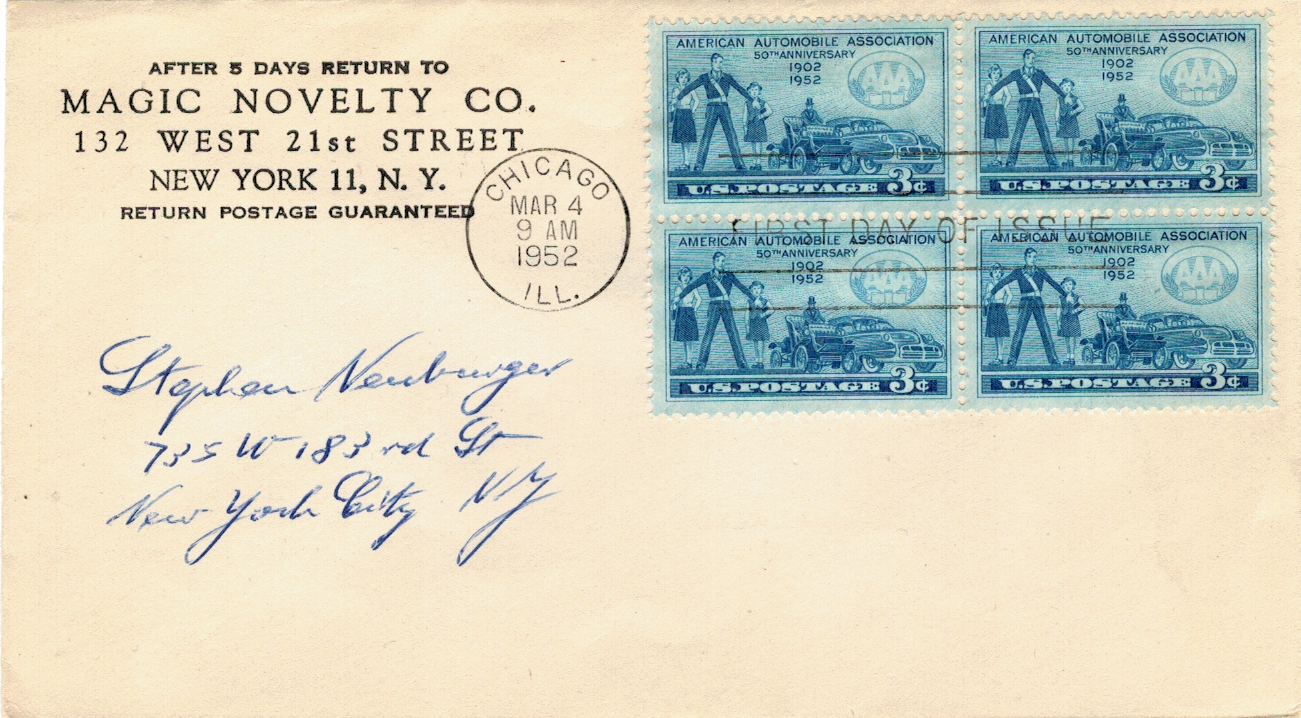 AFTER 5 DAYS RETURN TO
MAGIC NOVELTY CO.
132 WEST 21st STREET
NEW YORK 11, N. Y.
RETURN POSTAGE GUARANTEED
CHICAGO
MAR 4
9 AM
1952
ILL.
FIRST DAY OF ISSUE
AMERICAN AUTOMOBILE ASSOCIATION
50TH ANNIVERSARY
1902
1952
AAA
U.S. POSTAGE 3¢
AMERICAN AUTOMOBILE ASSOCIATION
50TH ANNIVERSARY
1902
1952
AAA
U.S. POSTAGE 3¢
AMERICAN AUTOMOBILE ASSOCIATION
50TH ANNIVERSARY
1902
1952
AAA
U.S. POSTAGE 3¢
AMERICAN AUTOMOBILE ASSOCIATION
50TH ANNIVERSARY
1902
1952
AAA
U.S. POSTAGE 3¢
Stephen Neuburger
735 W 183rd St
New York City NY